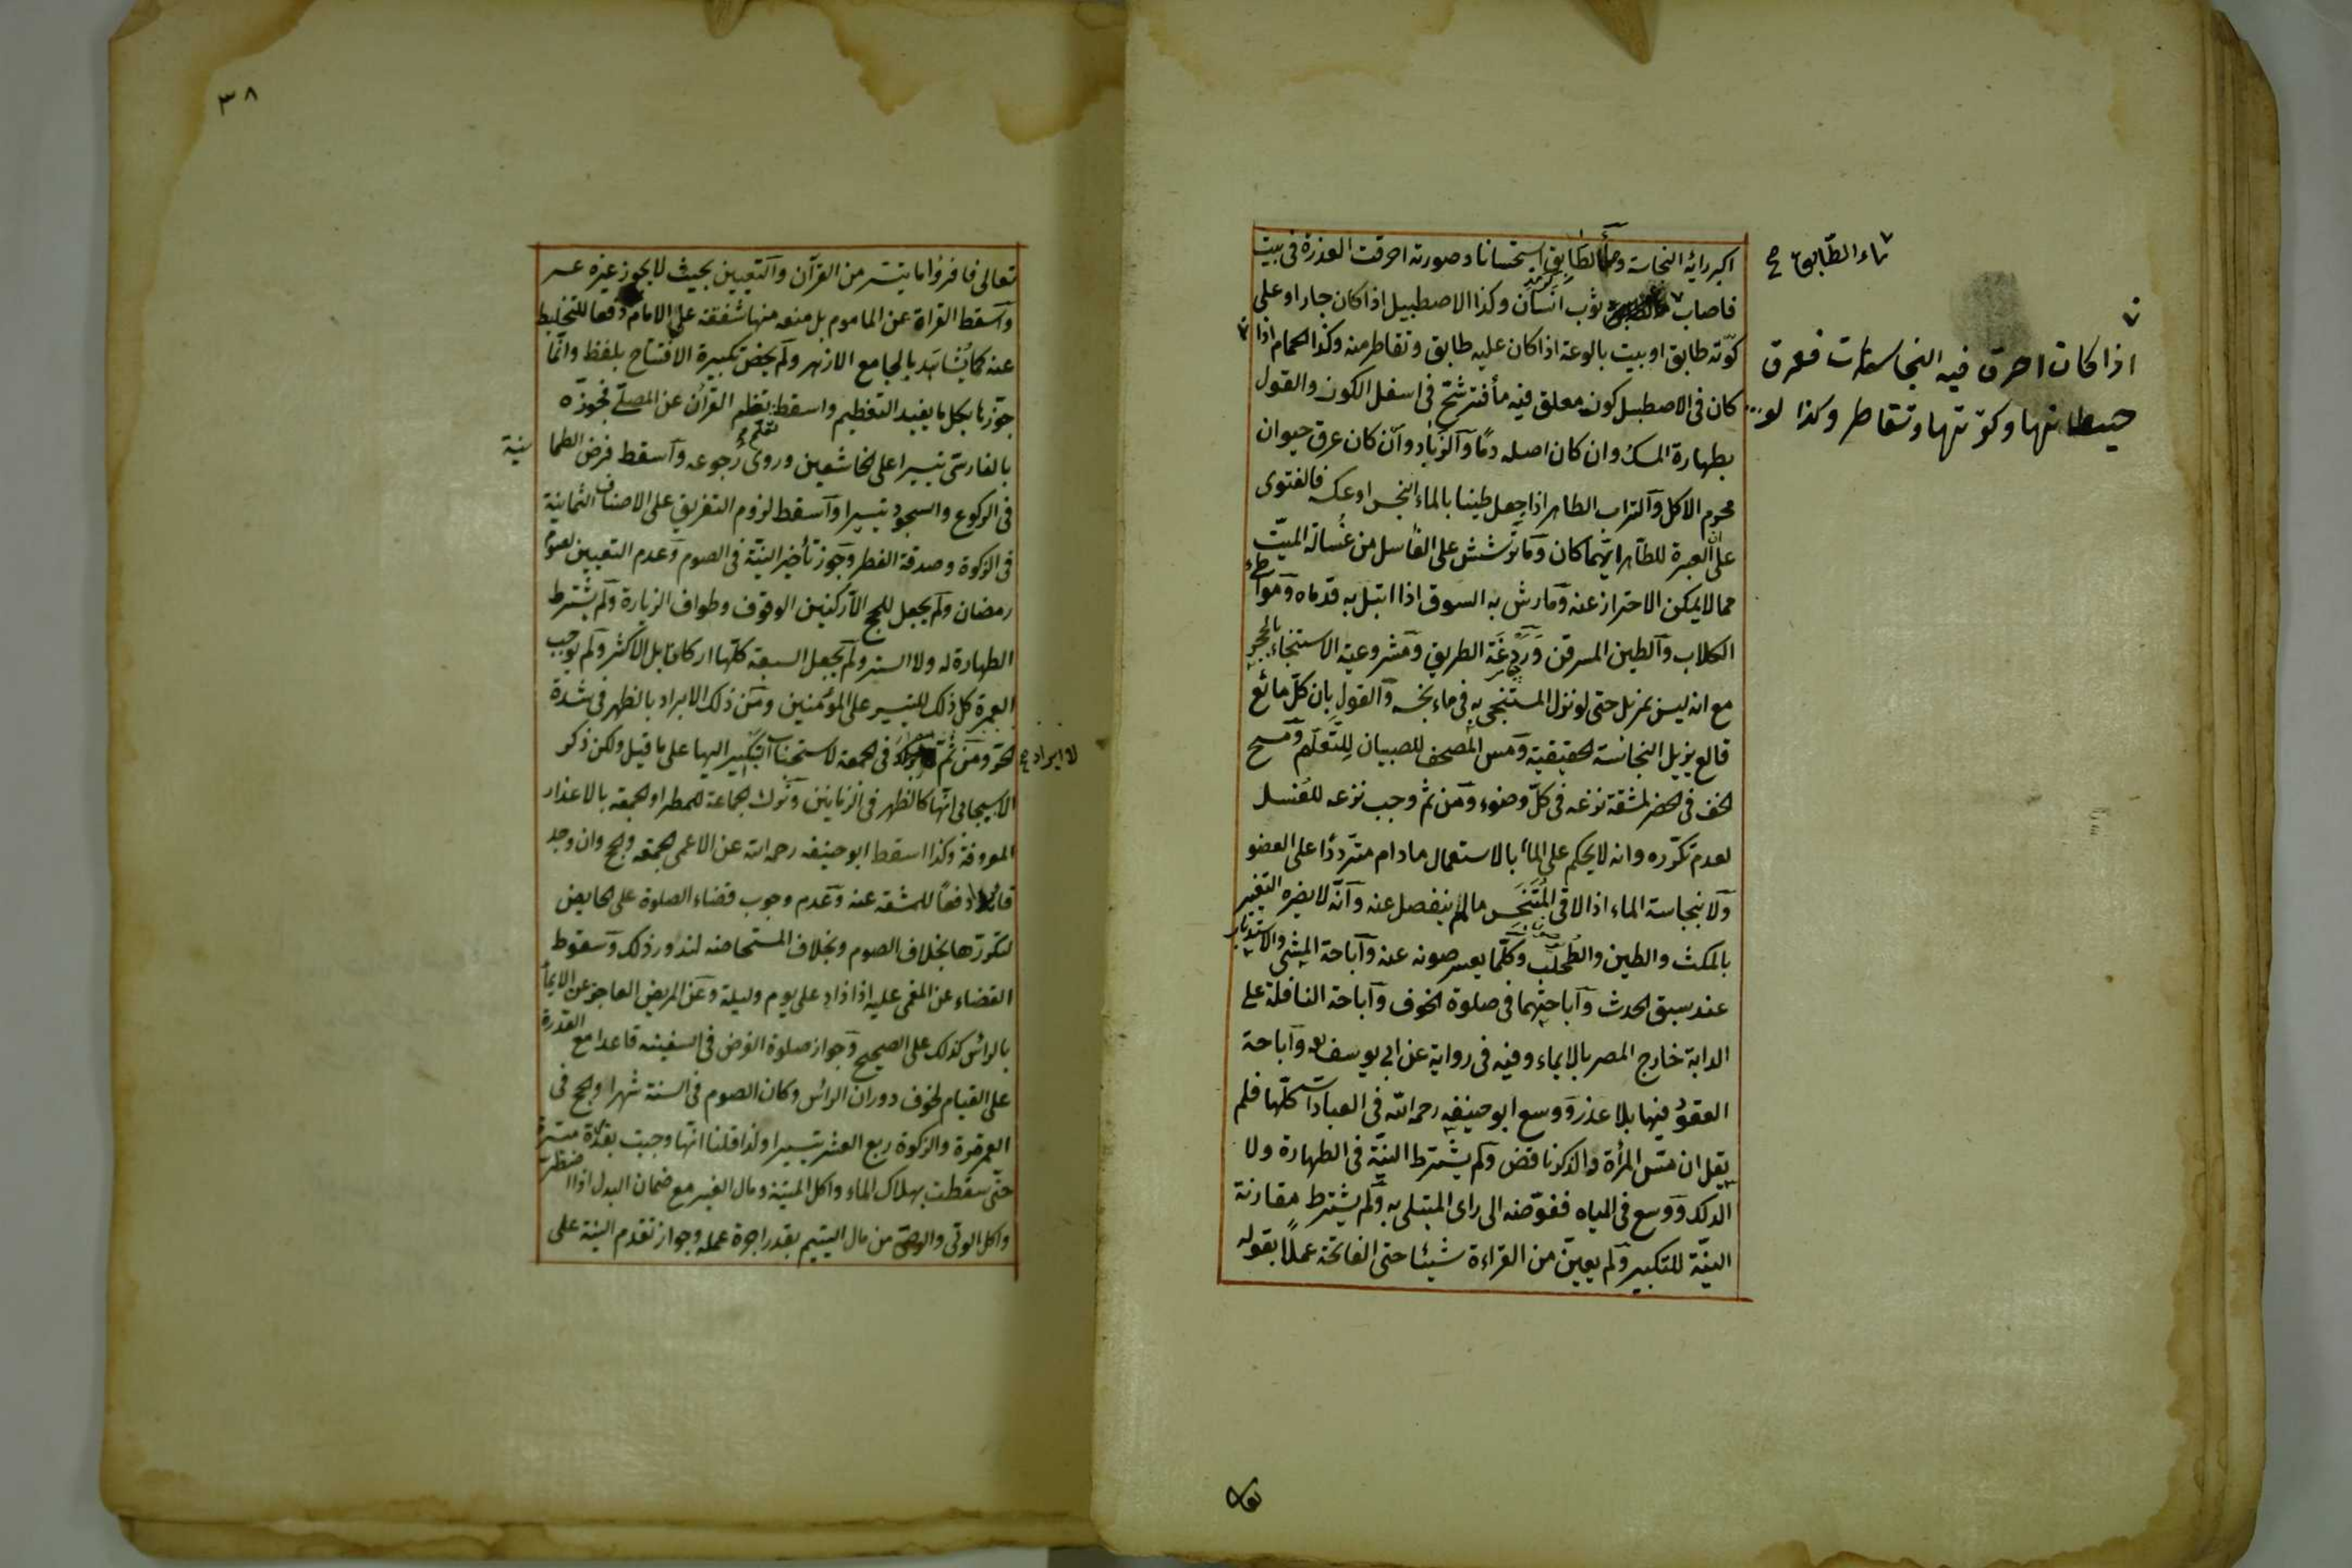 ماء الطابق صح
اذا كان احرق فيه النجاسات فعرق
حيطانها وكوتها وتقاطر وكذا لو
اكبر رائه النجاسة وماء الطابق استحسانا وصورته احرقت العذرة فى بيت
فاصاب ثوب انسان وكذا الاصطبل اذا كان حارا وعلى
كوّته طابق او بيت بالوعة اذا كان عليه طابق وتقاطر منه وكذا الحمام اذا
كان فى الاصطبل كوز معلق فيه ماء فترشح فى اسفل الكوز والقول
بطهارة المسك وان كان اصله دمًا والزباد وان كان عرق حيوان
محرم الاكل والتراب الطاهر اذا جعل طينا بالماء النجس او عكسه فالفتوى
على ان العبرة للطاهر ايهما كان وما ترشش على الغاسل من غسالة الميت
مما لا يمكن الاحتراز عنه وما رش به السوق اذا ابتل به قدماه ومواطئ
الكلاب والطين المسرقن وردغة الطريق ومشروعية الاستنجاء بالحجر
مع انه ليس بمزيل حتى لو نزل المستنجى به فى ماء نجسه والقول بان كل مائع
قالع يزيل النجاسة الحقيقية ومس المصحف للصبيان للتعلم ومسح
الخف فى الحضر لمشقة نزعه فى كل وضوء ومن ثم وجب نزعه للغسل
لعدم تكرره وانه لا يحكم على الماء بالاستعمال مادام مترددًا على العضو
ولا بنجاسة الماء اذا لاقى المتنجس مالم ينفصل عنه وانه لا يضره التغير
بالمكث والطين والطحلب وكلما يعسر صونه عنه واباحة المشى والاستدبار
عند سبق الحدث واباحتهما فى صلوة الخوف واباحة النافلة على
الدابة خارج المصر بالايماء وفيه فى رواية عن ابى يوسف واباحة
القعود فيها بلا عذر ووسع ابو حنيفه رحمه الله فى العبادات كلها فلم
يقل ان مس المرأة والذكر ناقض ولم يشترط النية فى الطهارة ولا
الدلك ووسع فى المياه ففوضه الى راى المبتلى به ولم يشترط مقارنة
النية للتكبير ولم يعين من القراءة شيئا حتى الفاتحة عملًا بقوله
٣٨
تعالى فاقرؤا ما تيسر من القرآن والتعيين بحيث لا يجوز غيره عسر
واسقط القراة عن الماموم بل منعه منها شفقة على الامام دفعا للتخليط
عنه كما يشاهد بالجامع الازهر ولم يخص تكبيرة الافتتاح بلفظ وانما
جوزها بكل ما يفيد التعظيم واسقط نظم القرآن عن المصلى فجوزه
بالفارسى تيسيرا على الخاشعين وروى رجوعه واسقط فرض الطما
نينة
فى الركوع والسجود تيسيرا واسقط لزوم التفريق على الاصناف الثمانية
فى الزكوة وصدقة الفطر وجوز تأخير النية فى الصوم وعدم التعيين لصوم
رمضان ولم يجعل للحج الا ركنين الوقوف وطواف الزيارة ولم يشترط
الطهارة له ولا الستر ولم يجعل السبعة كلها اركانا بل الاكثر ولم يوجب
العمرة كل ذلك للتيسير على المؤمنين ومن ذلك الابراد بالظهر فى شدة
الحر ومن ثم فى الجمعة لاستحباب التبكير اليها على ما قيل ولكن ذكر
لا ابراد صح
الاسبيجابى انها كالظهر فى الزمانين وترك الجماعة للمطر او الجمعة بالاعذار
المعروفة وكذا اسقط ابو حنيفه رحمه الله عن الاعمى الجمعة والحج وان وجد
قائدا دفعًا للمشقة عنه وعدم وجوب قضاء الصلوة على الحايض
لتكررها بخلاف الصوم وبخلاف المستحاضه لندور ذلك وسقوط
القضاء عن المغمى عليه اذا زاد على يوم وليلة وعن المريض العاجز عن الايماء
بالراس كذلك على الصحيح وجواز صلوة الفرض فى السفينه قاعدا مع القدرة
على القيام لخوف دوران الراس وكان الصوم فى السنة شهرا والحج فى
العمر مرة والزكوة ربع العشر تيسيرا ولذا قلنا انها وجبت بقدرة ميسرة
حتى سقطت بهلاك الماء واكل الميتة ومال الغير مع ضمان البدل اذا اضطر
واكل الولى والوصى من مال اليتيم بقدر اجرة عمله وجواز تقدم النية على